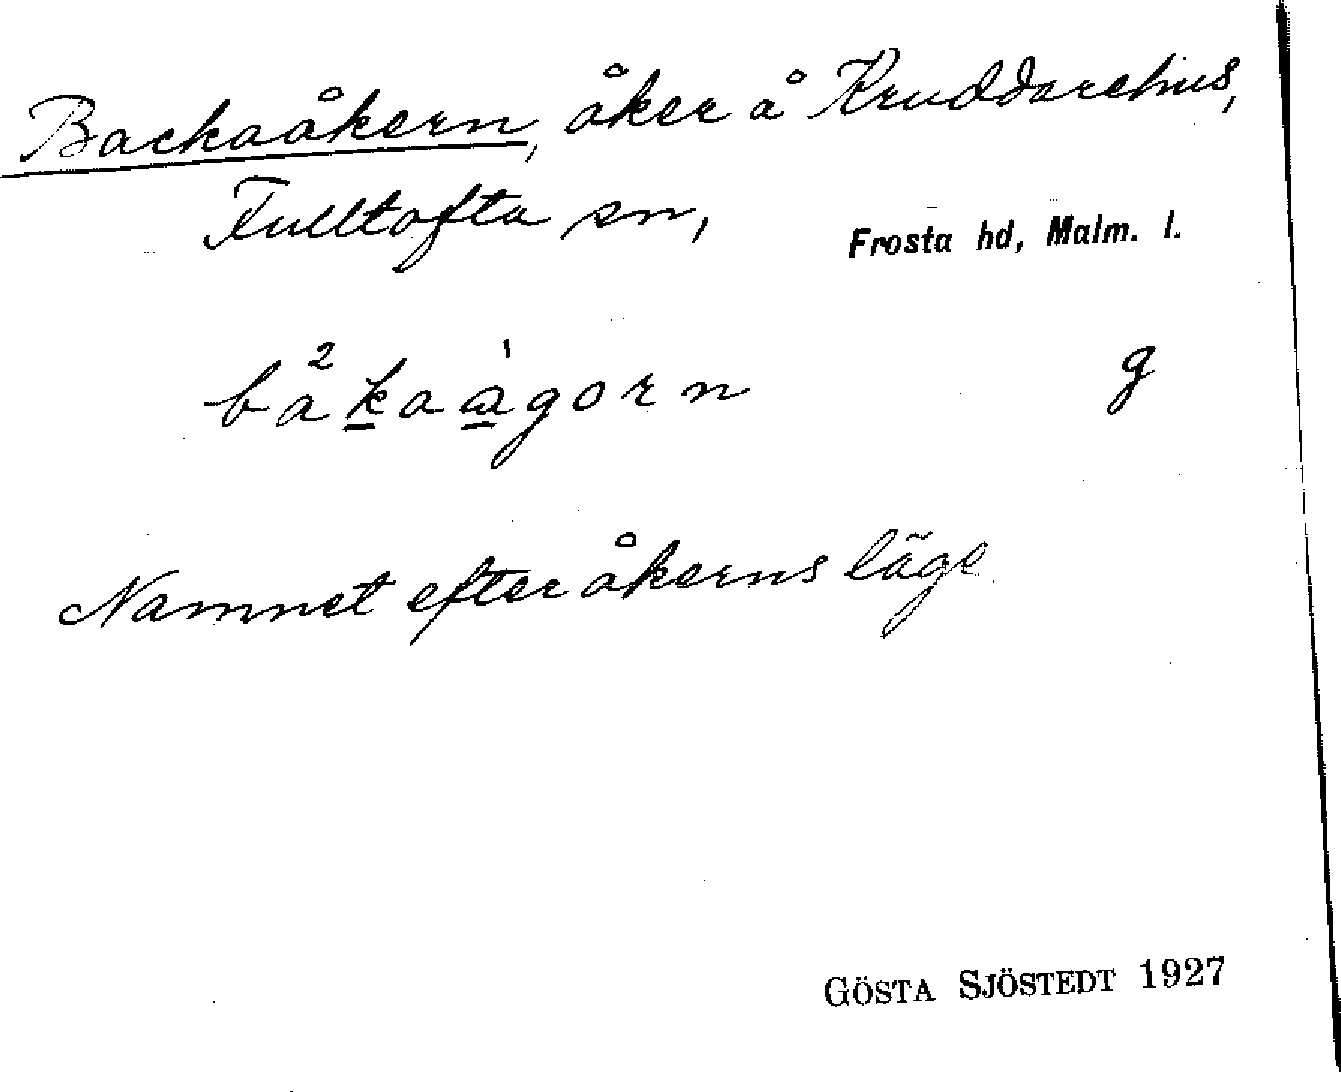 Backaåkern, åker å Kruddarehus,
Fulltofta sn, Frosta hd, Malm. l.
båkaågorn g
Namnet efter åkerns läge
GÖSTA SJÖSTEDT 1927